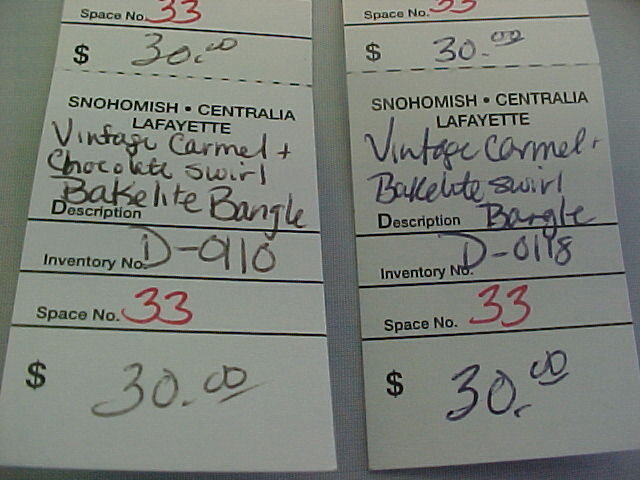 Space No. 33
$ 30.00
SNOHOMISH • CENTRALIA
LAFAYETTE
Vintage Carmel +
Chocolate swirl
Bakelite Bangle
Description
Inventory No. D-0110
Space No. 33
$ 30.00
Space No. 33
$ 30.00
SNOHOMISH • CENTRALIA
LAFAYETTE
Vintage Carmel +
Bakelite swirl
Description Bangle
Inventory No. D-0118
Space No. 33
$ 30.00